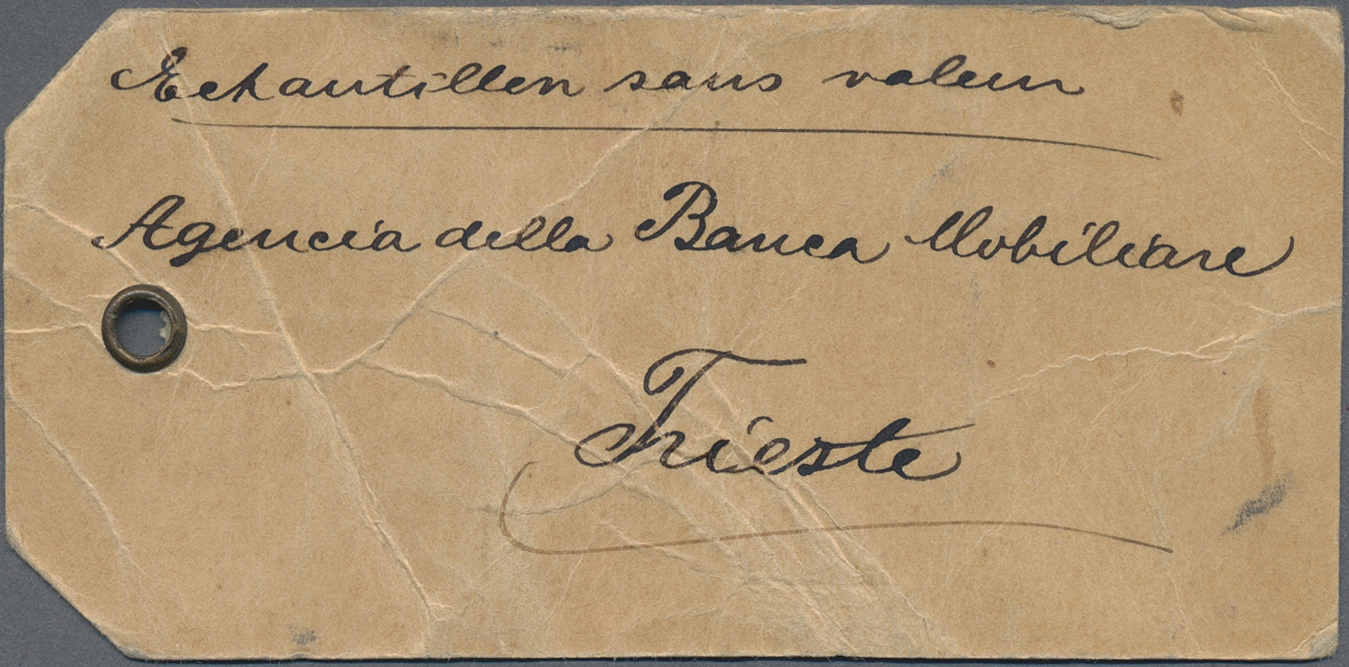 Echantillon sans valeur
Agencia della Banca Mobiliare
Trieste